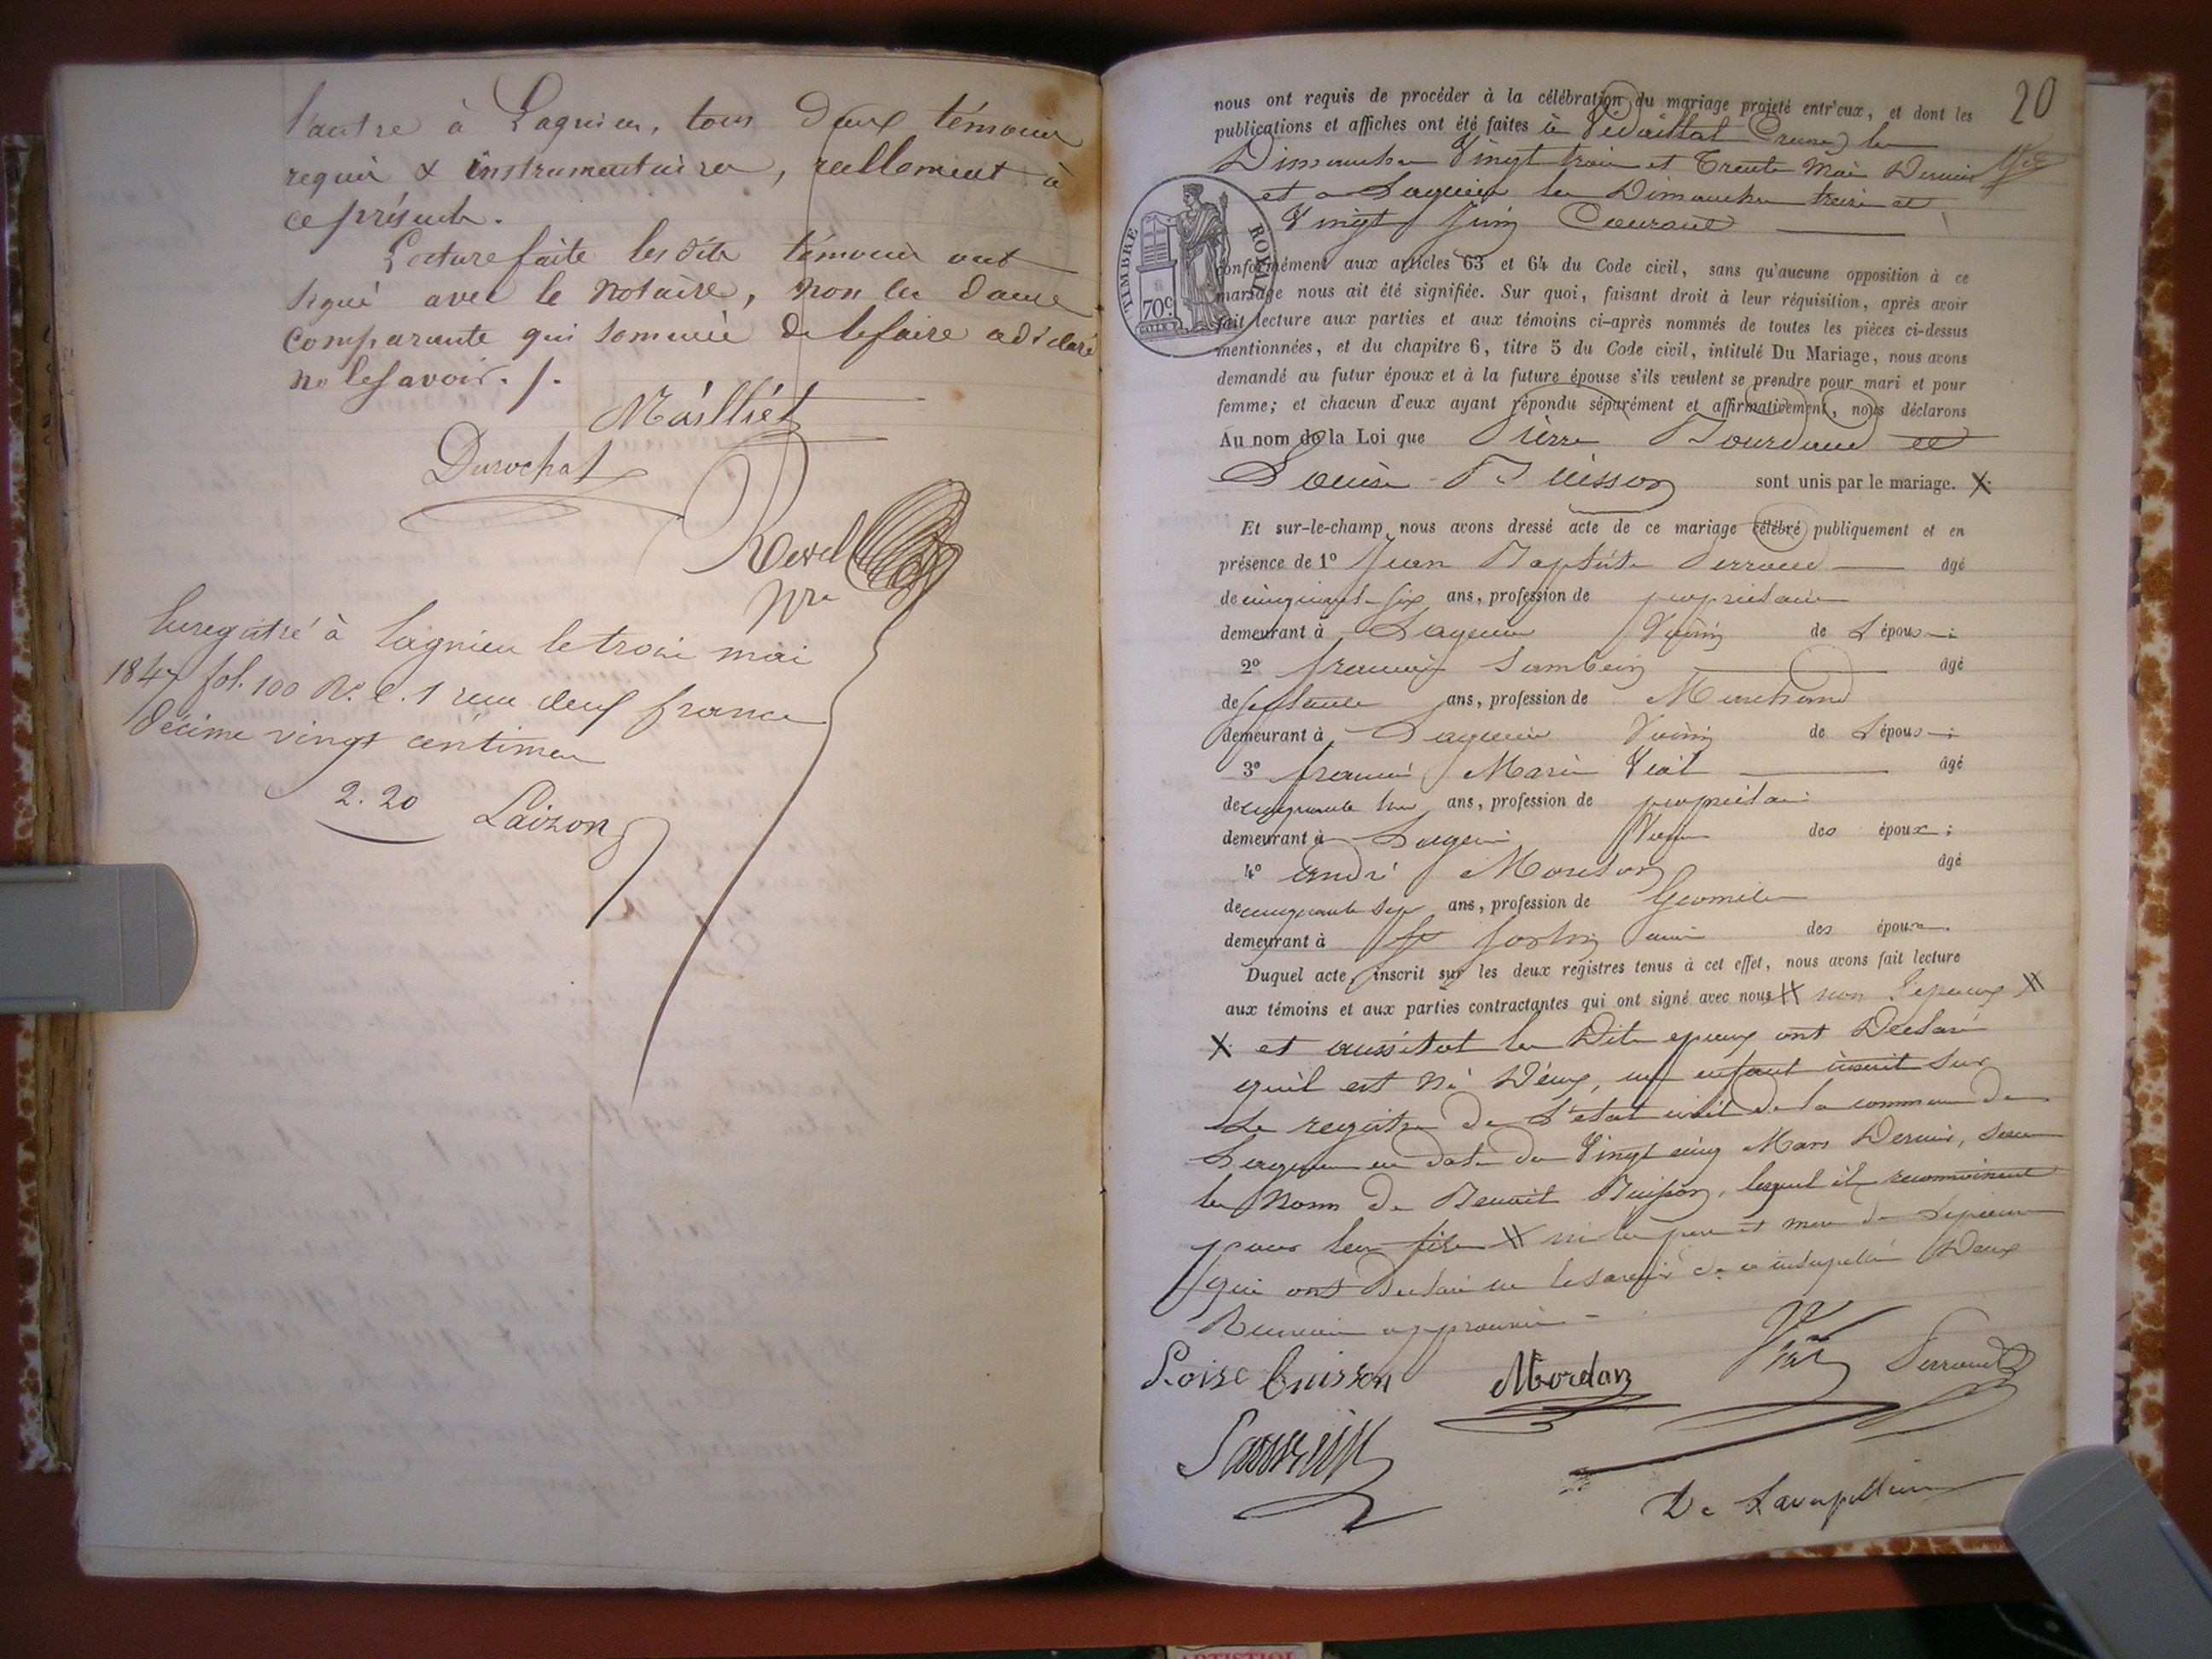 l'autre à Lagnieu, tous deux témoins
requis & instrumentaires, réellement à
ce présents.
Lecture faite lesdits témoins ont
signé avec le Notaire, non la dame
comparante qui sommée de le faire a déclaré
ne le savoir. /.
Mailliet
Durochat
Revel
Nre
Enregistré à Lagnieu le trois mai
1847 fol. 100 Ro. C. 1 reçu deux francs
décime vingt centimes
2.20 Laizon
20
nous ont requis de procéder à la célébration du mariage projeté entr'eux, et dont les
publications et affiches ont été faites à Vidaillat Creuse) les
Dimanches Vingt trois et Trente Mai Dernier
et a Lagnieu les Dimanches treize et
Vingt Juin Courant
TIMBRE ROYAL
70c.
conformément aux articles 63 et 64 du Code civil, sans qu'aucune opposition à ce
mariage nous ait été signifiée. Sur quoi, faisant droit à leur réquisition, après avoir
fait lecture aux parties et aux témoins ci-après nommés de toutes les pièces ci-dessus
mentionnées, et du chapitre 6, titre 5 du Code civil, intitulé Du Mariage, nous avons
demandé au futur époux et à la future épouse s'ils veulent se prendre pour mari et pour
femme; et chacun d'eux ayant répondu séparément et affirmativement, nous déclarons
Au nom de la Loi que Pierre Bourdaud et
Louise Buisson sont unis par le mariage. X
Et sur-le-champ nous avons dressé acte de ce mariage célébré publiquement et en
présence de 1º Jean Baptiste Perroud âgé
de cinquante six ans, profession de propriétaire
demeurant à Lagnieu Voisin de L'épouse;
2º françois âgé
de soixante ans, profession de Marchand
demeurant à Lagnieu Voisin de L'épouse;
3º françois Marie Vial âgé
de cinquante ans, profession de propriétaire
demeurant à Lagnieu Voisin des époux;
4º andré âgé
de cinquante sept ans, profession de Géomètre
demeurant à St Sorlin ami des époux.
Duquel acte, inscrit sur les deux registres tenus à cet effet, nous avons fait lecture
aux témoins et aux parties contractantes qui ont signé avec nous # non l'epoux #
X et aussitot les Dits epoux ont Declaré
qu'il est né D'eux, un enfant inscrit sur
le registre de l'etat civil de la commune de
Lagnieu en date du Vingt cinq Mars Dernier, sous
les Noms de Benoit Buisson, lequel ils reconnoissent
pour leur fils # ni les pere et mere de L'epouse
qui ont Declaré ne le savoir de ce interpellés Deux
Renvois approuvés -
Loise buisson Vial Perroud
De Lavapellière